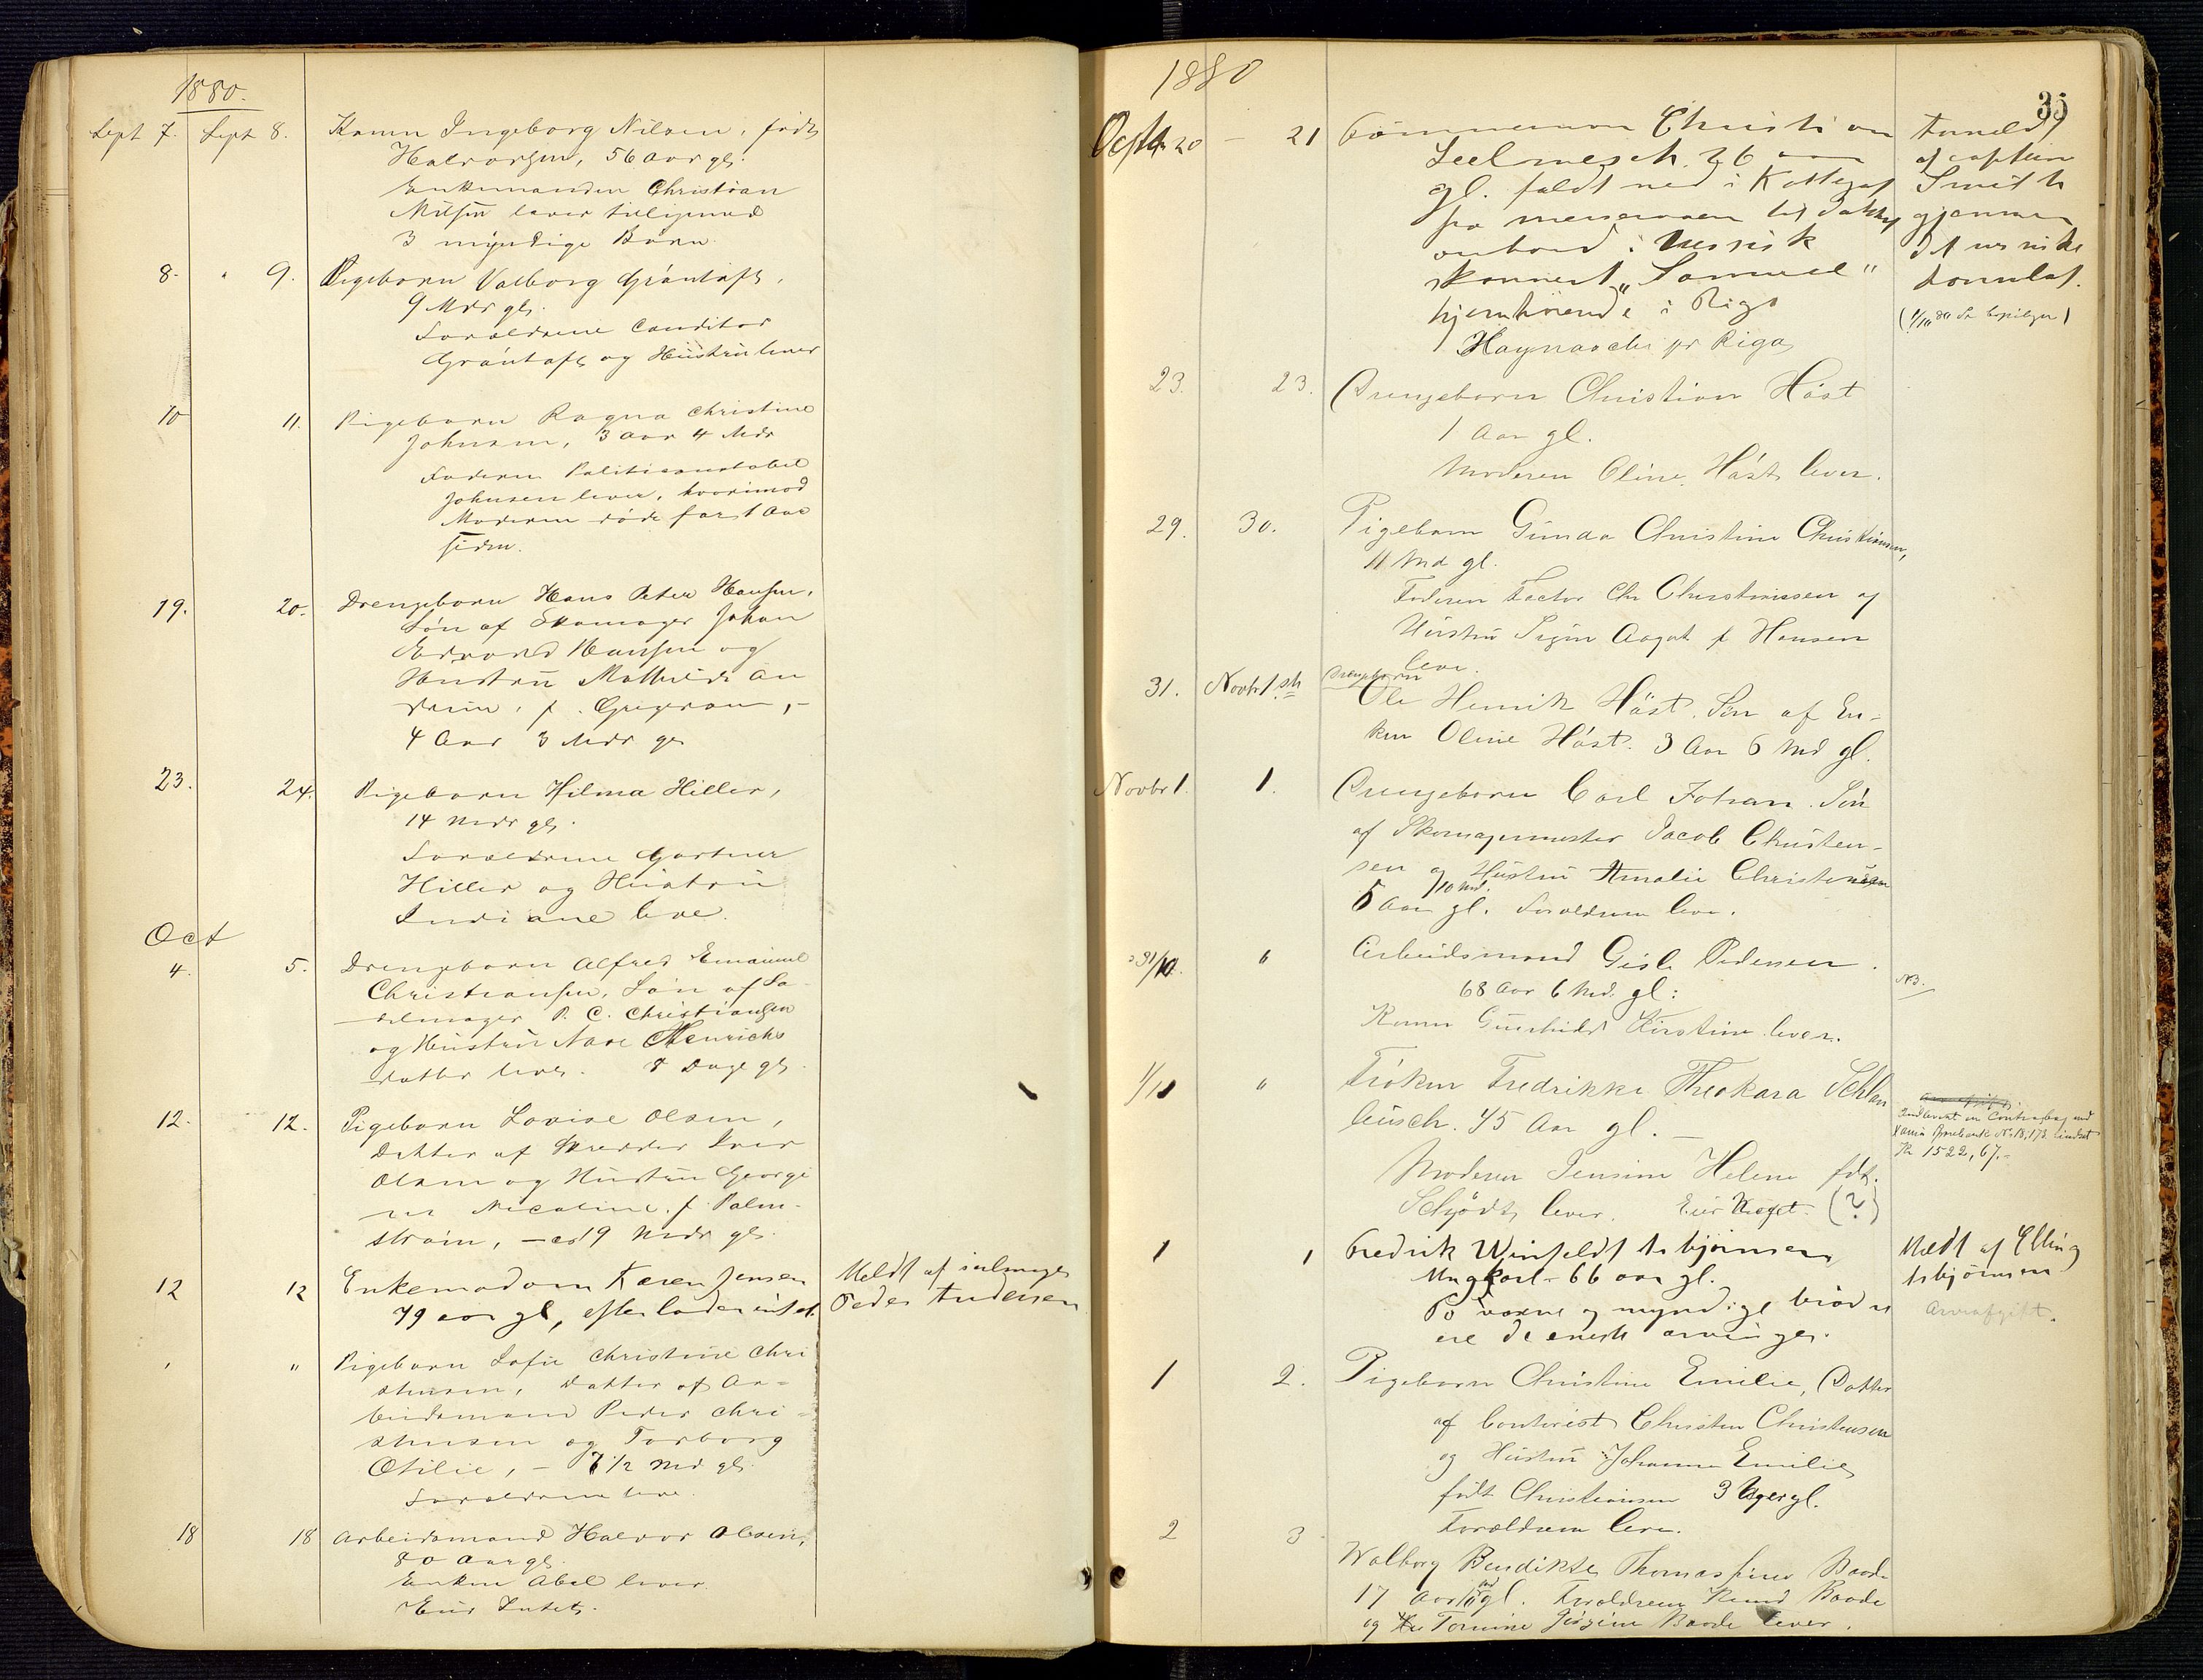 1880.
Sept 7. Sept 8. Konen Ingeborg Nilsen, født
Halvorsen, 56 Aar gl.
Enkemanden Christian
Nilsen lever tilligemed
3 myndige Børn.
8. " 9. Pigebarn Valborg Grántoft,
9 Mdr gl.
Forældrene Conditor
Grántoft og Hustru lever
10 11. Pigebarn Ragna Christine
Johnsen, 3 Aar 4 Mdr
Faderen Politiconstabel
Johnsen lever, hvorimod
Moderen døde for 1 Aar
siden.
19. 20. Drengebarn Hans Peter Hansen,
Søn af Skomager Johan
Edvard Hansen og
Hustru Mathilde An
drine, f. Gregersen,
4 Aar 3 Mdr gl
23. 24. Pigebarn Hilma Hiller,
14 Mdr gl.
Forældrene Gartner
Hiller og Hustru
Indiane leve.
Oct
4. 5. Drengebarn Alfred Emanuel
Christiansen, Søn af Sa
delmager P. C. Christiansen
og Hustru Henrichs
datter lever. 8 Dage gl.
12. 12. Pigebarn Lovise Olsen,
Datter af Skredder Iver
Olsen og Hustru Georgi
ne Nicoline f. Palm-
strøm, – 19 Mdr gl.
12 12 Enkemadam Karen Jensen
79 aar gl, efterlader intet.
Meldt af
Peder Andersen
" Pigebarn Sofie Christine Chri
stensen, Datter af Ar-
beidsmand Peder Chri-
stensen og Torborg
Otilie, – 7 1/2 Md gl.
Forældrene leve.
18 18 Arbeidsmand Halvor Olsen,
80 Aar gl.
Enken Abel lever.
Eier Intet.
1880
35
Octbr 20 – 21 Tømmermon Christian
26 aar
gl. faldt ned i Kattegat
fra til Dækket
ombord i russisk
skonnert "Samuel"
hjemhørende i Riga
Haynasche pr Riga
Anmeldt
af captein
Smith
gjennem
det russiske
konsulat.
23. 23. Drengebarn Christian Höst
1 Aar gl.
Moderen Oline Høst lever.
29. 30. Pigebarn Gunda Christine Christiansen,
11 Md gl.
Faderen Factor Chr Christiansen og
Hustru Aagot f Hansen
leve.
31. Novbr 1ste Drengebarn
Ole Henrik Höst. Søn af En-
ken Oline Høst. 3 Aar 6 Md gl.
Novbr 1. 1. Drengebarn Carl Johan. Søn
af Skomagermester Jacob Christen-
sen og Hustru Amalie Christensen
5 Aar 10 Md. gl. Forældrene leve.
31/10. " Arbeidsmand Gisle Pedersen.
68 Aar 6 Md. gl:
Konen Gunhild Kirstine lever.
NB.
1/11 " Frøken Fredrikke Theokara Schlan
busch. 45 Aar gl. –
Moderen Jensine Helene fdt.
Schjødt, lever. Eier Noget. (?)
Indleveret en Contrabog med
Xania Sparebank No 18,173 lindset
Kr 1522,67.–
1 1 Fredrik Winfeldt Asbjørnsen
Ungkarl – 66 aar gl.
To voxne og myndige brødre
ere de eneste arvinger.
Meldt af Elling
Asbjørnsen
Arveafgift.
1 2. Pigebarn Christine Emilie, Datter
af Contorist Christen Christensen
og Hustru Johanne Emilie
født Christiansen 3 Uger gl.
Forældrene leve.
2 3 Walborg Bendikte Thomasine Baade
17 Aar gl. Forældrene Knud Baade
og Tomine Jørgine Baade lever.